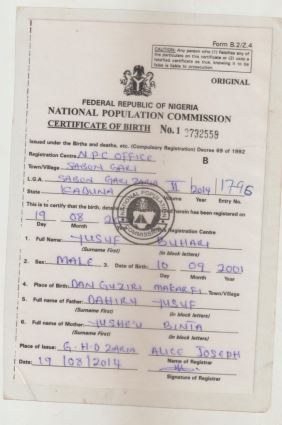 Form B.2/Z.4
CAUTION: Any person who (1) falsifies any of the particulars on this certificate or (2) uses a falsified certificate as true, knowing it to be false is liable to prosecution.
ORIGINAL
FEDERAL REPUBLIC OF NIGERIA
NATIONAL POPULATION COMMISSION
CERTIFICATE OF BIRTH No.1 3792559
Issued under the Births and deaths, etc. (Compulsory Registration) Decree 69 of 1992
Registration Centre N.P.C OFFICE
B
Town/Village SABON GARI
L.G.A. SABON GARI ZARIA II 2014 1796
State KADUNA Volume Year Entry No.
This is to certify that the birth, details of which are herein has been registered on
19 08
Day Month Registration Centre
1. Full Name: YUSUF BUHARI
(Surname First) (in block letters)
2. Sex: MALE 3. Date of Birth: 10 09 2001
Day Month Year
4. Place of Birth: DAN GUZIRI MAKARFI Town/Village
5. Full name of Father: DAHIRU YUSUF
(Surname First) (In block letters)
6. Full name of Mother: YUSHE'U BINTA
(Surname First) (In block letters)
Place of Issue: G.H.D ZARIA ALICE JOSEPH
Name of Registrar
Date: 19/08/2014
Signature of Registrar